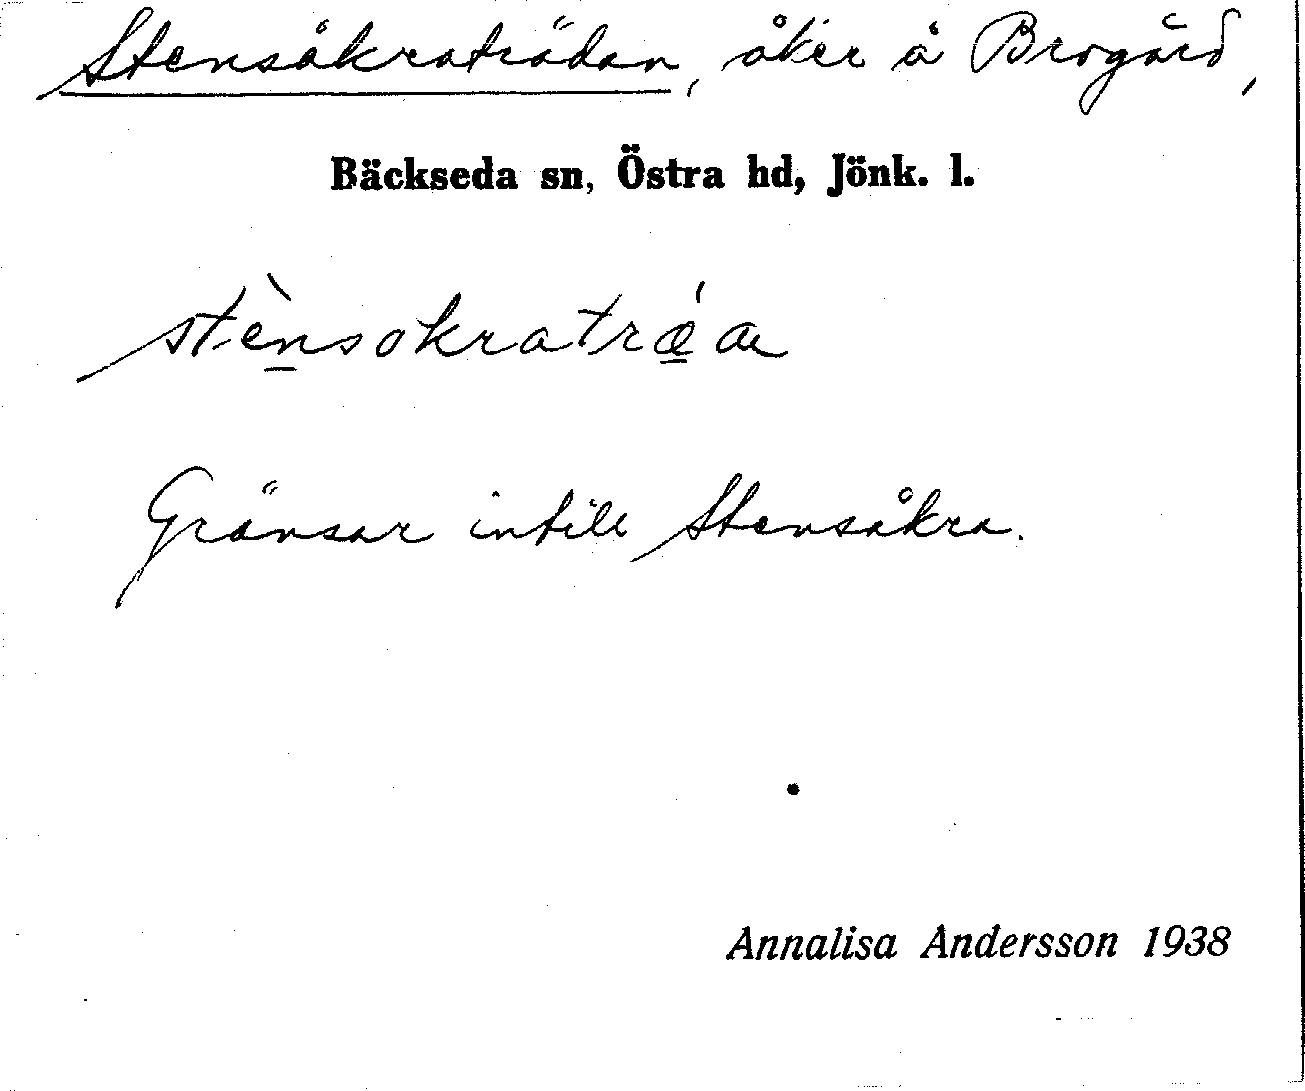 Stensåkraträdan, åker å Brogård,
Bäckseda sn, Östra hd, Jönk. l.
stènsokratrǽa
Gränsar intill Stensåkra.
Annalisa Andersson 1938